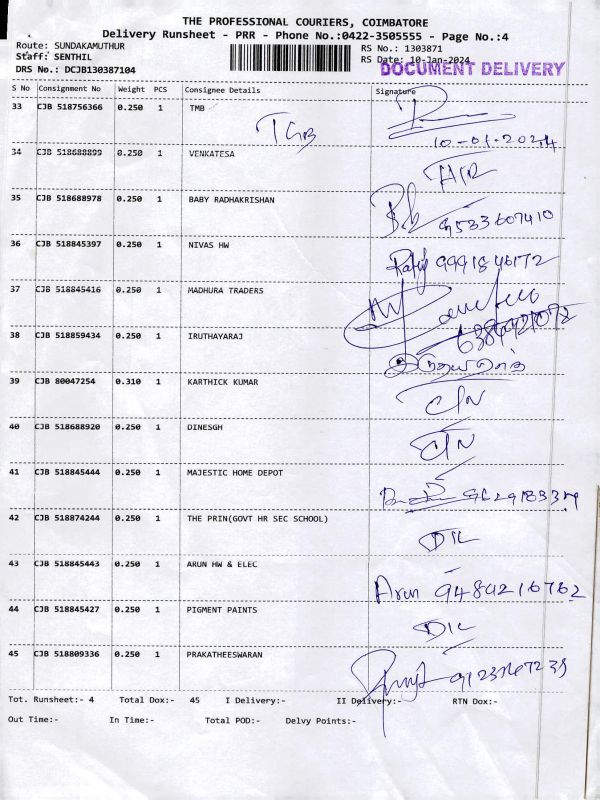 THE PROFESSIONAL COURIERS, COIMBATORE
Delivery Runsheet - PRR - Phone No.:0422-3505555 - Page No.:4
Route: SUNDAKAMUTHUR RS No.: 1303871
Staff: SENTHIL RS Date: 10-Jan-2024
DRS No.: DCJB130387104 DOCUMENT DELIVERY
S No Consignment No Weight PCS Consignee Details Signature
33 CJB 518756366 0.250 1 TMB
10-01-2024
34 CJB 518688899 0.250 1 VENKATESA
35 CJB 518688978 0.250 1 BABY RADHAKRISHAN
9533607410
36 CJB 518845397 0.250 1 NIVAS HW
37 CJB 518845416 0.250 1 MADHURA TRADERS
38 CJB 518859434 0.250 1 IRUTHAYARAJ
39 CJB 80047254 0.310 1 KARTHICK KUMAR
C/N
40 CJB 518688920 0.250 1 DINESGH
C/N
41 CJB 518845444 0.250 1 MAJESTIC HOME DEPOT
42 CJB 518874244 0.250 1 THE PRIN(GOVT HR SEC SCHOOL)
D/L
43 CJB 518845443 0.250 1 ARUN HW & ELEC
Arun 9484216762
44 CJB 518845427 0.250 1 PIGMENT PAINTS
D/L
45 CJB 518809336 0.250 1 PRAKATHEESWARAN
Tot. Runsheet:- 4 Total Dox:- 45 I Delivery:- II Delivery:- RTN Dox:-
Out Time:- In Time:- Total POD:- Delvy Points:-